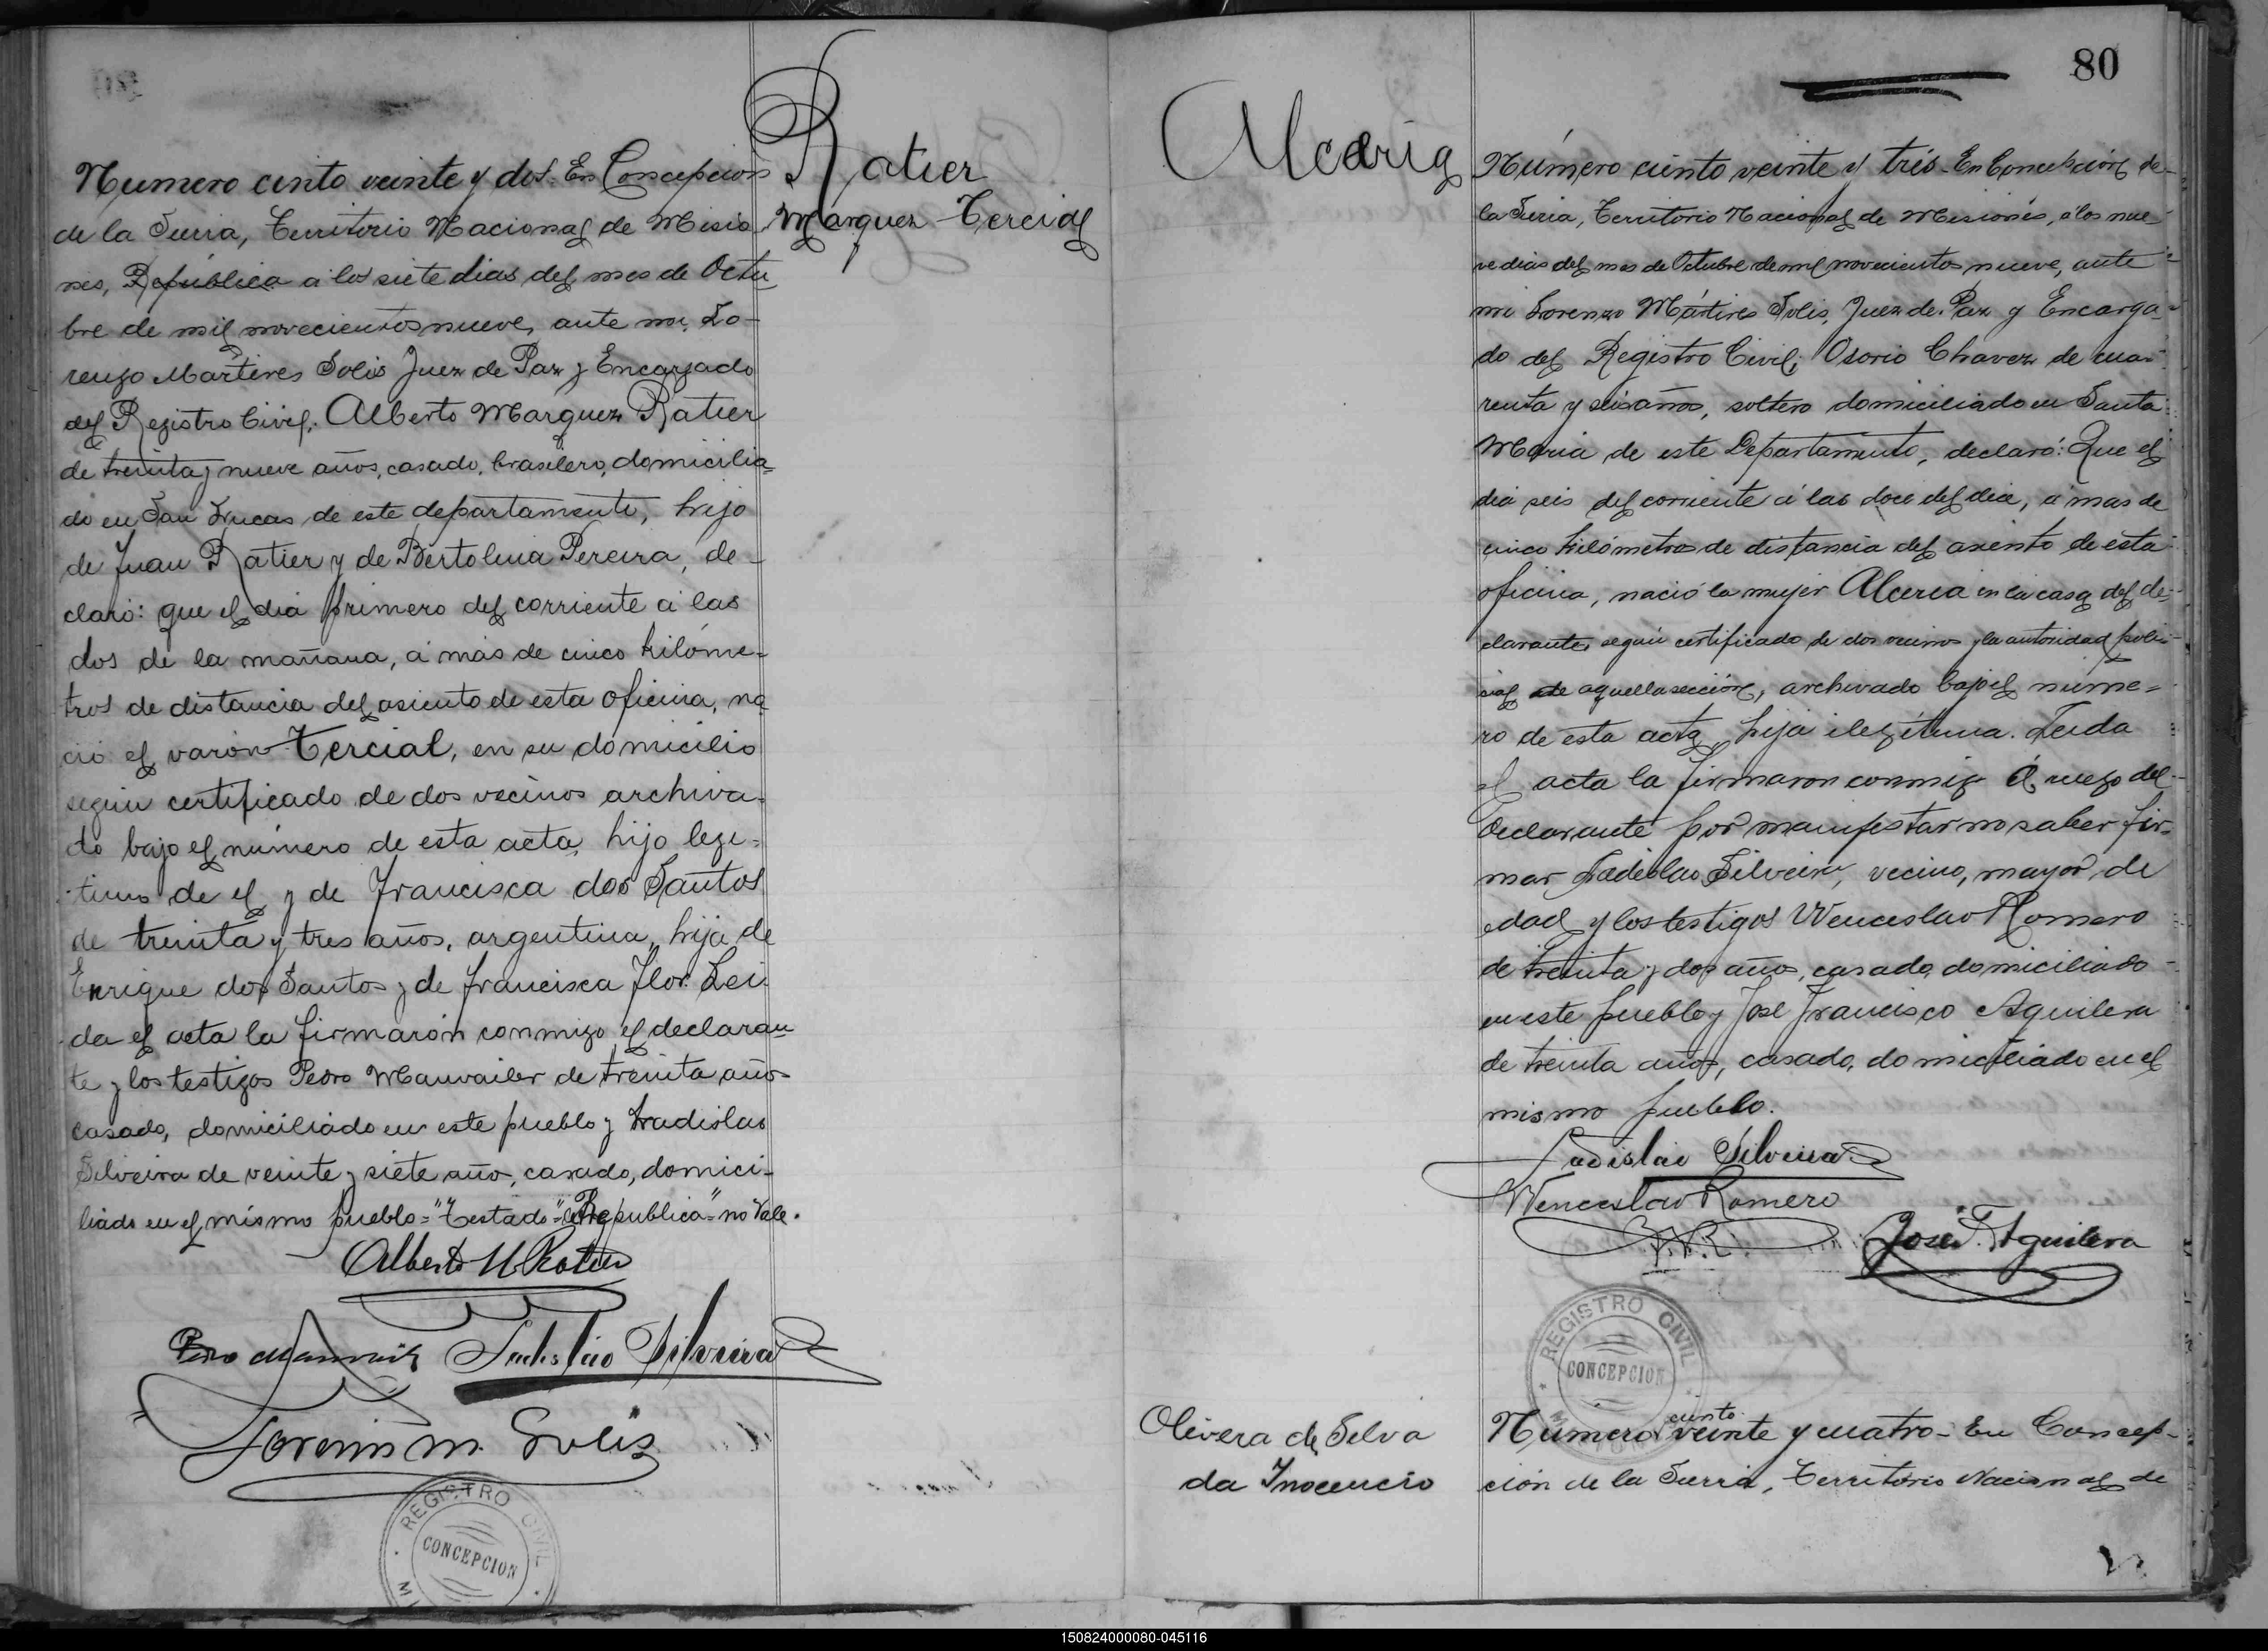 Ratier
Marquez Tercial
Numero cinto veinte y dos. En Concepcion
de la Sierra, Territorio Nacional de Misio
nes, República a los siete dias del mes de Octu
bre de mil novecientos nueve, ante mi, Lo-
renzo Martires Solis Juez de Paz y Encargado
del Registro Civil, Alberto Marquez Ratier
de treinta y nueve años, casado, brasilero, domicilia-
do en San Lucas de este departamento, hijo
de Juan Ratier y de Bertolina Pereira, de-
claró: que el dia primero del corriente a las
dos de la mañana, a más de cinco kilóme-
tros de distancia del asiento de esta oficina, na
ció el varón Tercial, en su domicilio
según certificado de dos vecinos archiva-
do bajo el número de esta acta, hijo legi-
timo de el y de Francisca dos Santos
de treinta y tres años, argentina, hija de
Enrique dos Santos y de Francisca Flor. Lei
da el acta la firmarón conmigo el declaran
te y los testigos Pedro Manvailer de treinta años
casado, domiciliado en este pueblo y Ladislao
Silveira de veinte y siete año, casado, domici-
liado en el mismo pueblo="Testado" "República" no Vale.
Alberto M Ratier
Pedro Ladislao Silveira
Lorenzo M. Solis
REGISTRO CIVIL
CONCEPCION
80
Alceria
Número ciento veinte y trés- En Concepción de
la Sierra, Territorio Nacional de Misiones, a los nue-
ve dias del mes de Octubre de mil novecientos nueve, ante
mi Lorenzo Mártires Solis, Juez de Paz y Encarga-
do del Registro Civil; Osorio Chavez de cua-
renta y seis años, soltero domiciliado en Santa
Maria de este Departamento, declaró: Que el
dia seis del corriente á las doce del dia, a mas de
cinco kilómetros de distancia del asiento de esta
oficina, nació la mujer Alceria en la casa del de-
clarante, según certificado de dos vecinos y la autoridad poli-
cial de aquella sección, archivado bajo el núme-
ro de esta acta, hija ilegítima. Leida
el acta la firmaron conmigo á ruego del
declarante por manifestar no saber fir-
mar, Ladislao Silveira, vecino, mayor de
edad y los testigos Wenceslao Romero
de treinta y dos años, casado, domiciliado
en este pueblo y José Francisco Aguilera
de treinta años, casado, domiciliado en el
mismo pueblo.
Ladislao Silveira
Wenceslao Romero
José F. Aguilera
REGISTRO CIVIL
CONCEPCION
Olivera de Silva
da Inocencio
Número ciento veinte y cuatro- En Concep-
ción de la Sierra, Territorio Nacional de
150824000080-045116